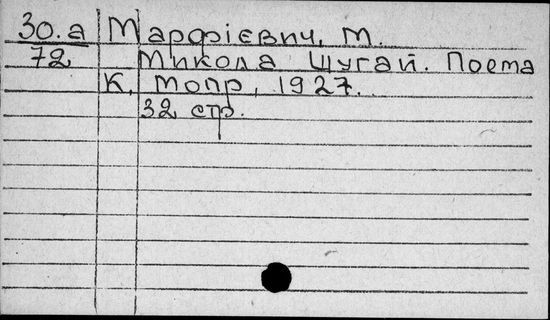 30.а Марфієвич, М.
72 Микола Шугай. Поема
К. Мопр, 1927.
32 стр.